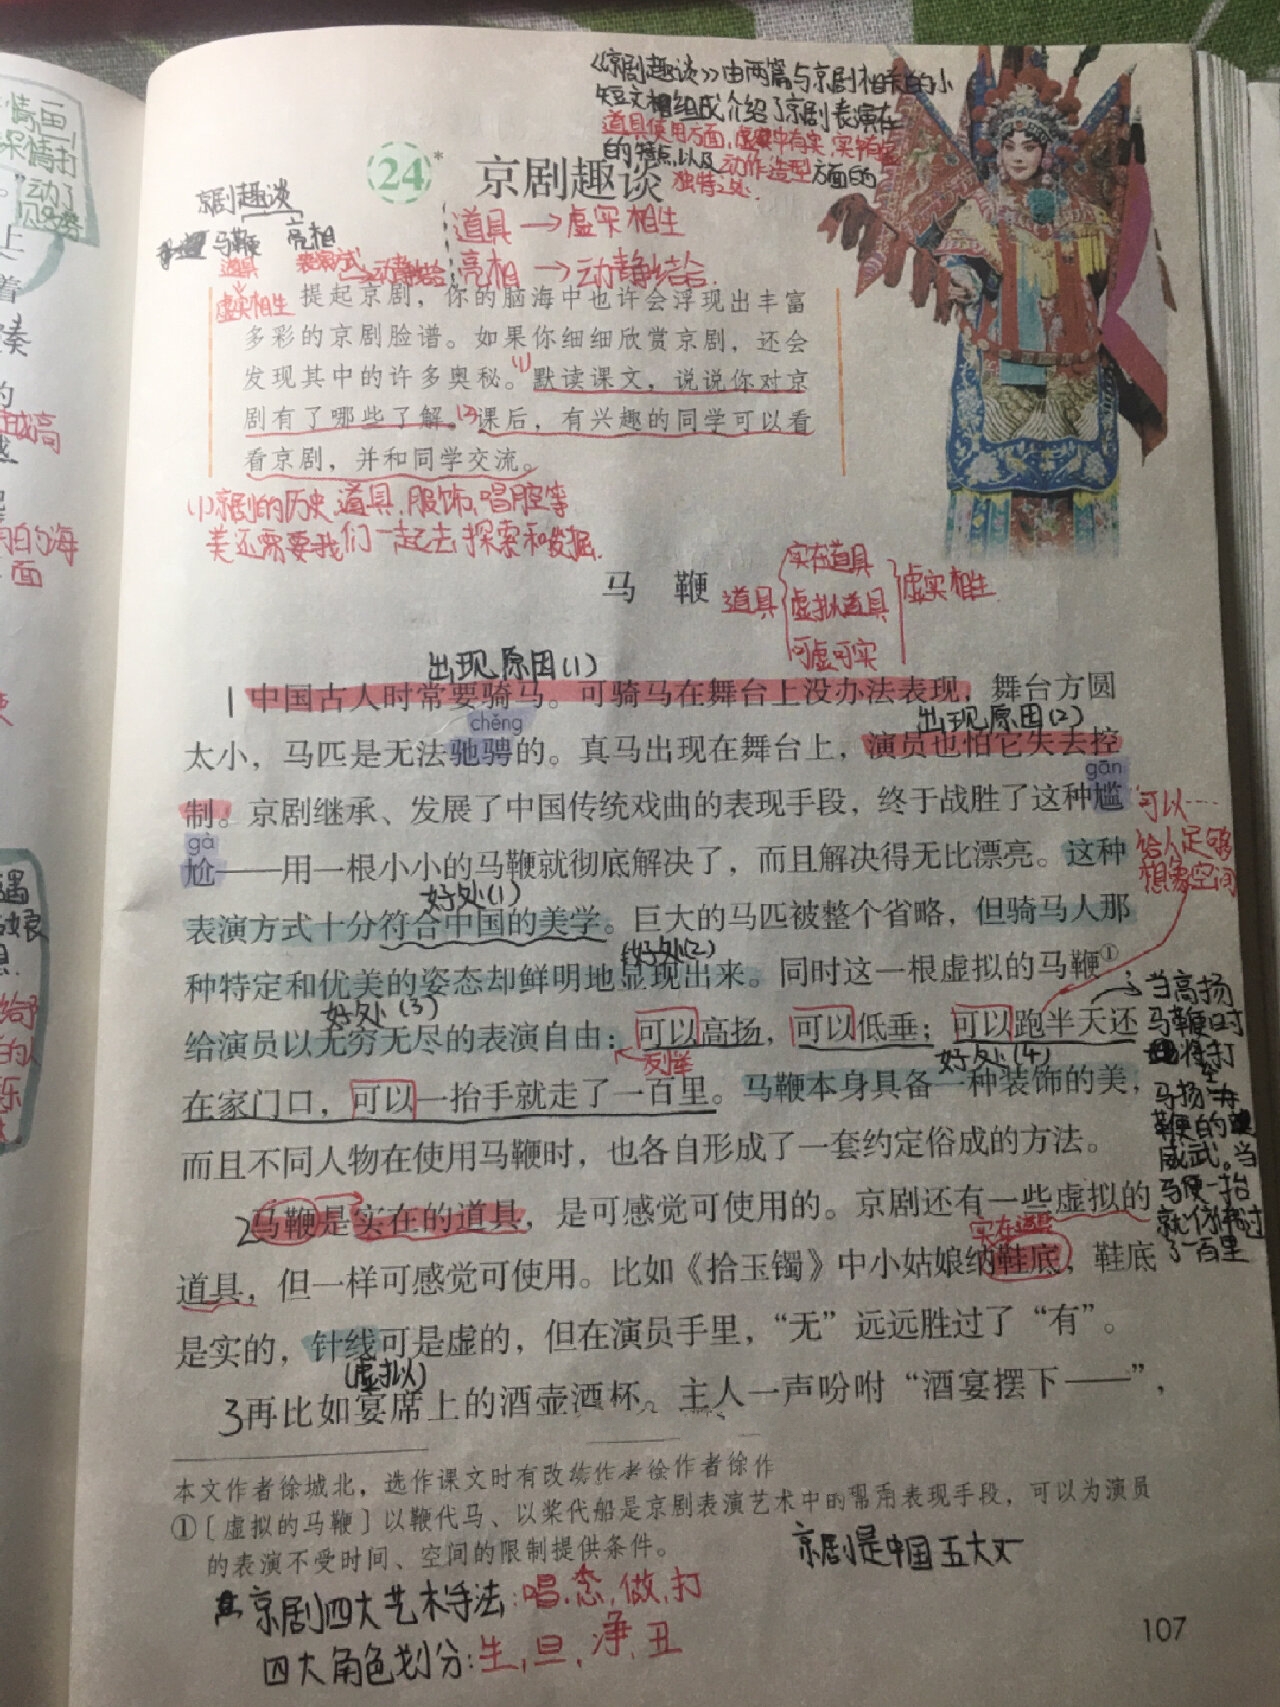 《京剧趣谈》由两篇与京剧相关的小
短文相组成介绍了京剧表演在
道具使用方面,虚中有实,实中有虚
的特点,以及动作造型方面的
独特之处.
24*
京剧趣谈
京剧趣谈
马鞭 亮相
道具 表演方式→动静结合
虚实相生
道具→虚实相生
亮相→动静结合.
提起京剧，你的脑海中也许会浮现出丰富
多彩的京剧脸谱。如果你细细欣赏京剧，还会
发现其中的许多奥秘。(1)默读课文，说说你对京
剧有了哪些了解。(2)课后，有兴趣的同学可以看
看京剧，并和同学交流。
(1)京剧的历史、道具、服饰、唱腔等
美还需要我们一起去探索和发掘.
马 鞭
道具 实在道具 虚拟道具 可虚可实 虚实相生
出现原因(1)
1中国古人时常要骑马。可骑马在舞台上没办法表现，舞台方圆
出现原因(2)
chěng
太小，马匹是无法驰骋的。真马出现在舞台上，演员也怕它失去控
gān
制。京剧继承、发展了中国传统戏曲的表现手段，终于战胜了这种尴
gà
尬——用一根小小的马鞭就彻底解决了，而且解决得无比漂亮。这种
好处(1)
表演方式十分符合中国的美学。巨大的马匹被整个省略，但骑马人那
好处(2)
种特定和优美的姿态却鲜明地显现出来。同时这一根虚拟的马鞭①
好处(3)
给演员以无穷无尽的表演自由：可以高扬，可以低垂；可以跑半天还
列举
好处(4)
在家门口，可以一抬手就走了一百里。马鞭本身具备一种装饰的美，
而且不同人物在使用马鞭时，也各自形成了一套约定俗成的方法。
2马鞭是实在的道具，是可感觉可使用的。京剧还有一些虚拟的
实在道具
道具，但一样可感觉可使用。比如《拾玉镯》中小姑娘纳鞋底，鞋底
是实的，针线可是虚的，但在演员手里，“无”远远胜过了“有”。
(虚拟)
3再比如宴席上的酒壶酒杯。主人一声吩咐“酒宴摆下——”，
可以……
给人足够
想象空间
当高扬
马鞭时
将打
马扬
鞭的
威武。当
一抬
就
了一百里
本文作者徐城北，选作课文时有改作者徐作
①〔虚拟的马鞭〕以鞭代马、以桨代船是京剧表演艺术中的常用表现手段，可以为演员
的表演不受时间、空间的限制提供条件。
京剧是中国五大
京剧四大艺术手法:唱.念,做,打
四大角色划分:生,旦,净,丑
107